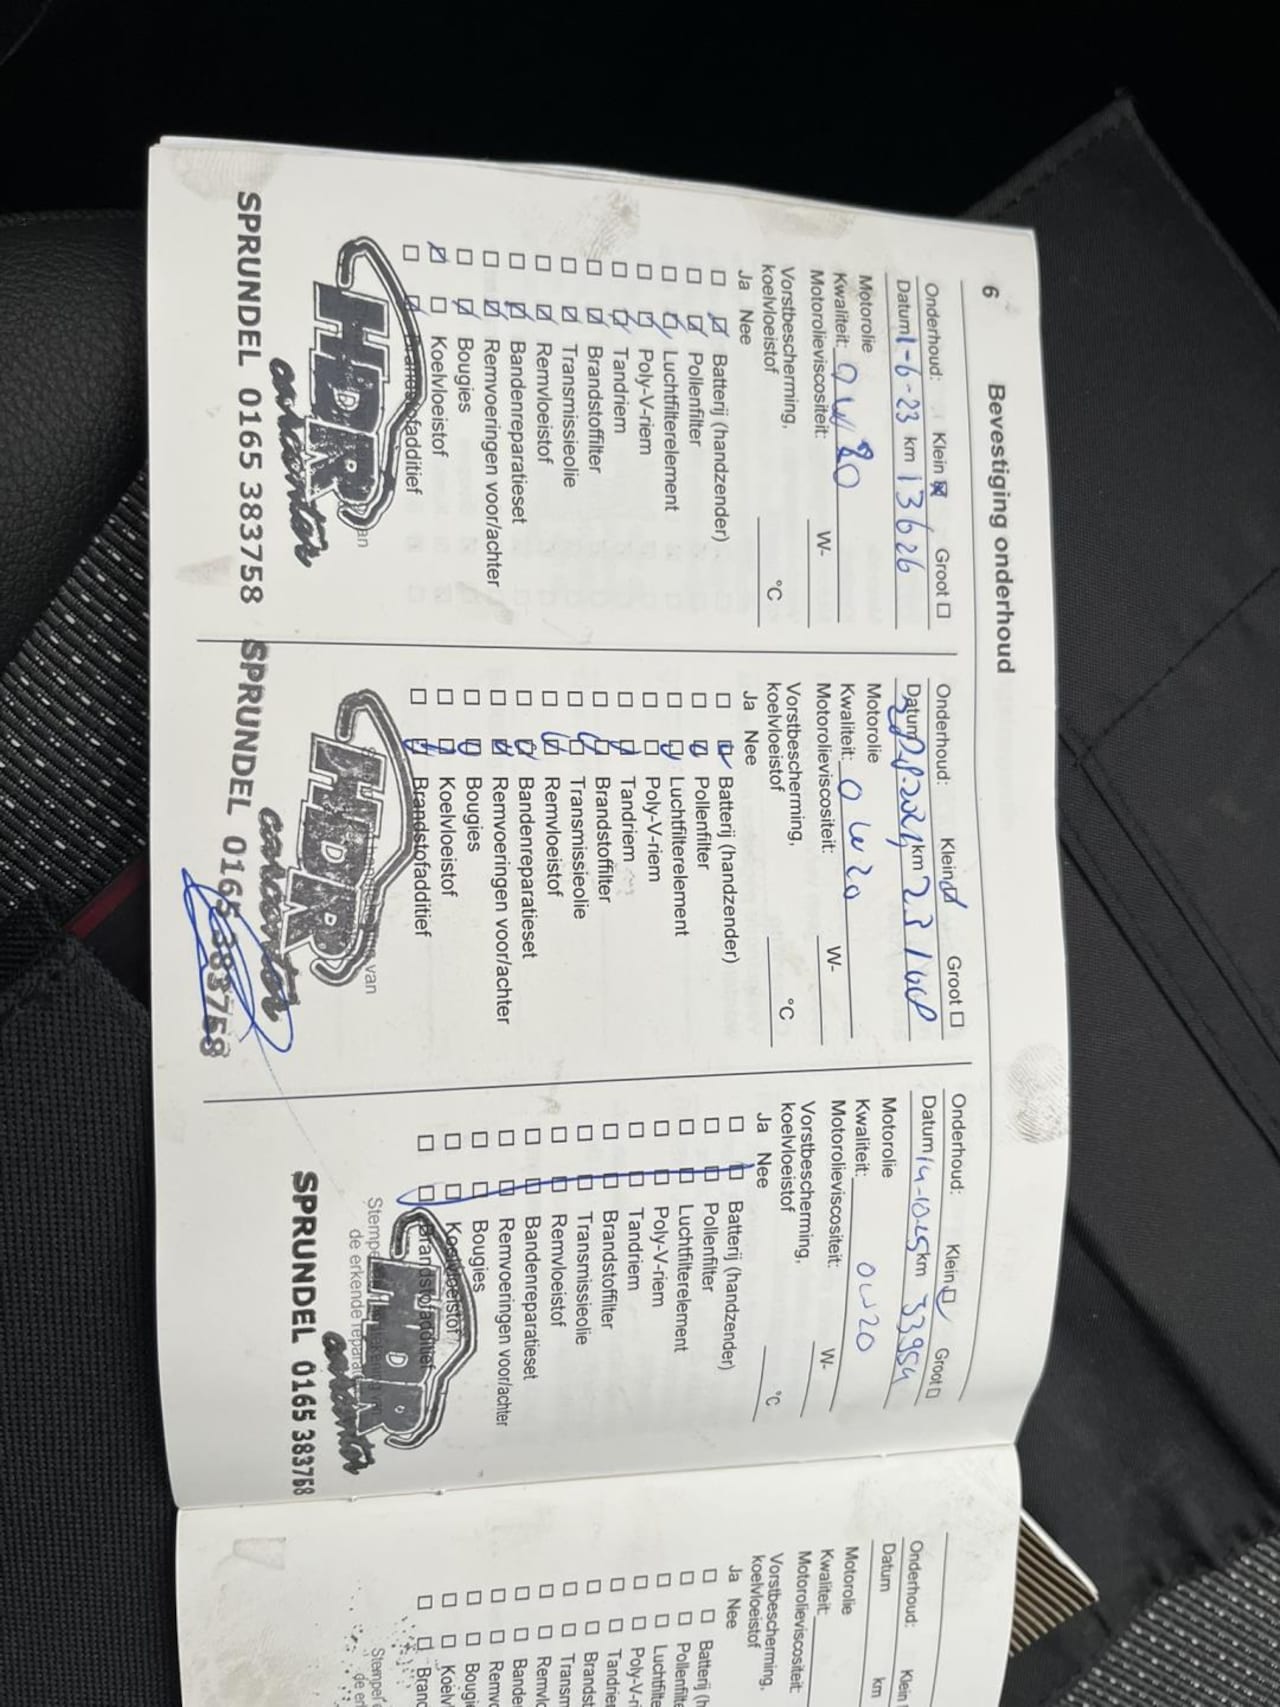 6 Bevestiging onderhoud
Onderhoud: Klein ☒ Groot ☐
Datum 1-6-23 km 13626
Motorolie
Kwaliteit: 0W20
Motorolieviscositeit: W-
Vorstbescherming,
koelvloeistof °C
Ja Nee
☐ ☑ Batterij (handzender)
☐ ☑ Pollenfilter
☐ ☑ Luchtfilterelement
☐ ☑ Poly-V-riem
☐ ☑ Tandriem
☐ ☑ Brandstoffilter
☐ ☑ Transmissieolie
☐ ☑ Remvloeistof
☐ ☑ Bandenreparatieset
☐ ☑ Remvoeringen voor/achter
☐ ☑ Bougies
☑ ☐ Koelvloeistof
☐ ☑ Brandstofadditief
van
HDR
carcenter
SPRUNDEL 0165 383758
Onderhoud: Klein ☑ Groot ☐
Datum km
Motorolie
Kwaliteit: 0W20
Motorolieviscositeit: W-
Vorstbescherming,
koelvloeistof °C
Ja Nee
☐ ☑ Batterij (handzender)
☐ ☑ Pollenfilter
☐ ☑ Luchtfilterelement
☐ ☐ Poly-V-riem
☐ ☑ Tandriem
☐ ☑ Brandstoffilter
☐ ☑ Transmissieolie
☐ ☑ Remvloeistof
☐ ☑ Bandenreparatieset
☐ ☑ Remvoeringen voor/achter
☐ ☑ Bougies
☐ ☑ Koelvloeistof
☐ ☑ Brandstofadditief
van
HDR
carcenter
SPRUNDEL 0165 383758
Onderhoud: Klein ☑ Groot ☐
Datum 14-10-25 km 33954
Motorolie
Kwaliteit: 0W20
Motorolieviscositeit: W-
Vorstbescherming,
koelvloeistof °C
Ja Nee
☐ ☐ Batterij (handzender)
☐ ☐ Pollenfilter
☐ ☐ Luchtfilterelement
☐ ☐ Poly-V-riem
☐ ☐ Tandriem
☐ ☐ Brandstoffilter
☐ ☐ Transmissieolie
☐ ☐ Remvloeistof
☐ ☐ Bandenreparatieset
☐ ☐ Remvoeringen voor/achter
☐ ☐ Bougies
☐ ☐ Koelvloeistof
☐ ☐ Brandstofadditief
Stempel
de erkende
HDR
carcenter
SPRUNDEL 0165 383758
Onderhoud: Klein
Datum km
Motorolie
Kwaliteit:
Motorolieviscositeit:
Vorstbescherming,
koelvloeistof
Ja Nee
☐ ☐ Batterij (h
☐ ☐ Pollenfilte
☐ ☐ Luchtfilte
☐ ☐ Poly-V-ri
☐ ☐ Tandrie
☐ ☐ Brandst
☐ ☐ Transm
☐ ☐ Remvlo
☐ ☐ Bande
☐ ☐ Remvo
☐ ☐ Bougi
☐ ☐ Koelv
☐ ☐ Branc
Stempel
de er